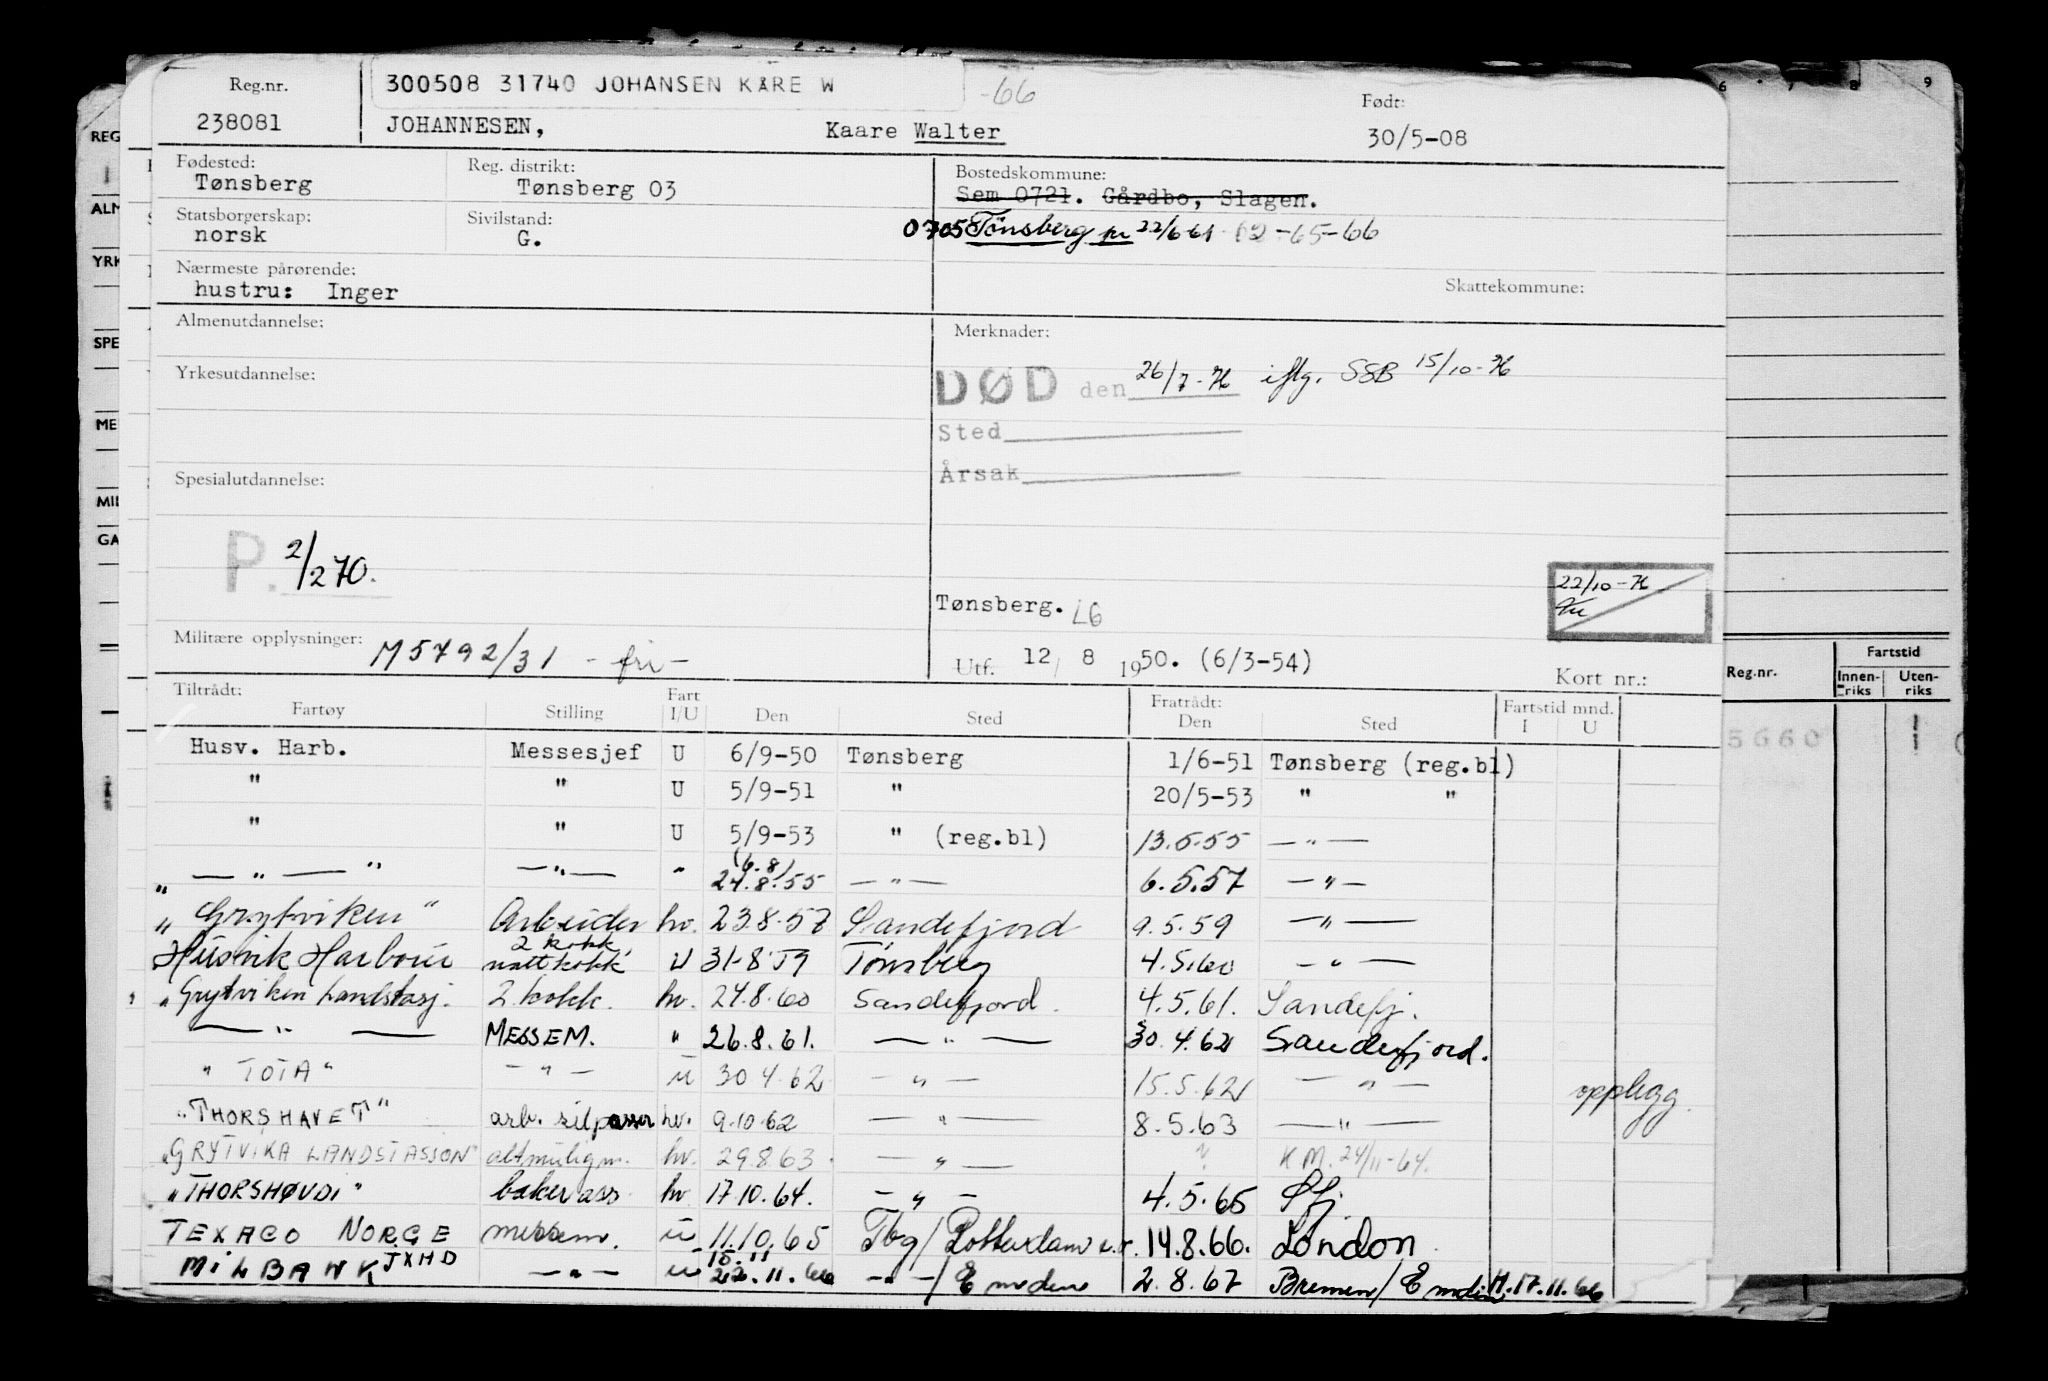 Reg.nr. 300508 31740 JOHANSEN KÅRE W -66 Født:
238081 JOHANNESEN, Kaare Walter 30/5-08
Fødested: Reg. distrikt: Bostedskommune:
Tønsberg Tønsberg 03 Sem 0721. Gårdbo, Slagen.
Statsborgerskap: Sivilstand: 0705 Tønsberg pr 22/6 61 62-65-66
norsk G.
Nærmeste pårørende: Skattekommune:
hustru: Inger
Almenutdannelse: Merknader:
Yrkesutdannelse: DØD den 26/7-76 iflg. SSB 15/10-76
Sted
Årsak
Spesialutdannelse:
P. 2/270.
22/10-76
Tønsberg. LG
Militære opplysninger: M5792/31 - fri -
Utf. 12/ 8 1950. (6/3-54) Kort nr.:
Tiltrådt: Fart Fratrådt: Fartstid mnd.
Fartøy Stilling I/U Den Sted Den Sted I U
Husv. Harb. Messesjef U 6/9-50 Tønsberg 1/6-51 Tønsberg (reg.bl)
" " U 5/9-51 " 20/5-53 " "
" " U 5/9-53 " (reg.bl) 13.6.55 — " —
(6.8)
" — " — " — " — " 24.8.55 — " — 6.5.57 — " —
" Grytviken " Arbeider hv. 23.8.57 Sandefjord 9.5.59 — " —
2 kokk
Husvik Harbour nattkokk U 31-8 59 Tønsberg 4.5.60 — " —
" Grytviken Landstasj. 2. kokk. hv. 24.8.60 Sandefjord. 4.5.61. Sandefj.
— " — MESSEM. " 26.8.61. — " — 30.4.62 Sandefjord.
" TOTA " — " — u 30 4.62 — " — 15.5.62 — " — opplegg.
"THORSHAVET" arb. silpasser hv. 9.10.62 — " — 8.5.63 — " —
"GRYTVIKA LANDSTASJON" altmuligm. hv. 29.8.63. — " — ? KM. 24/11-64.
"THORSHØVDI" bakerass. hv 17.10.64. — " — 4.5.65 Sfj.
TEXACO NORGE messem. u 11.10.65 Tbg/Rotterdam u.r. 14.8.66. London.
15.11
MILBANK JXHD — " — u 22.11.66 — " —/Emden 2.8.67 Bremen/Emden 17.11.66
REG
ALM
YRK
SPE
ME
MIL
GA
6 7 8 9
Fartstid
Reg.nr. Innen-riks Uten-riks
5660